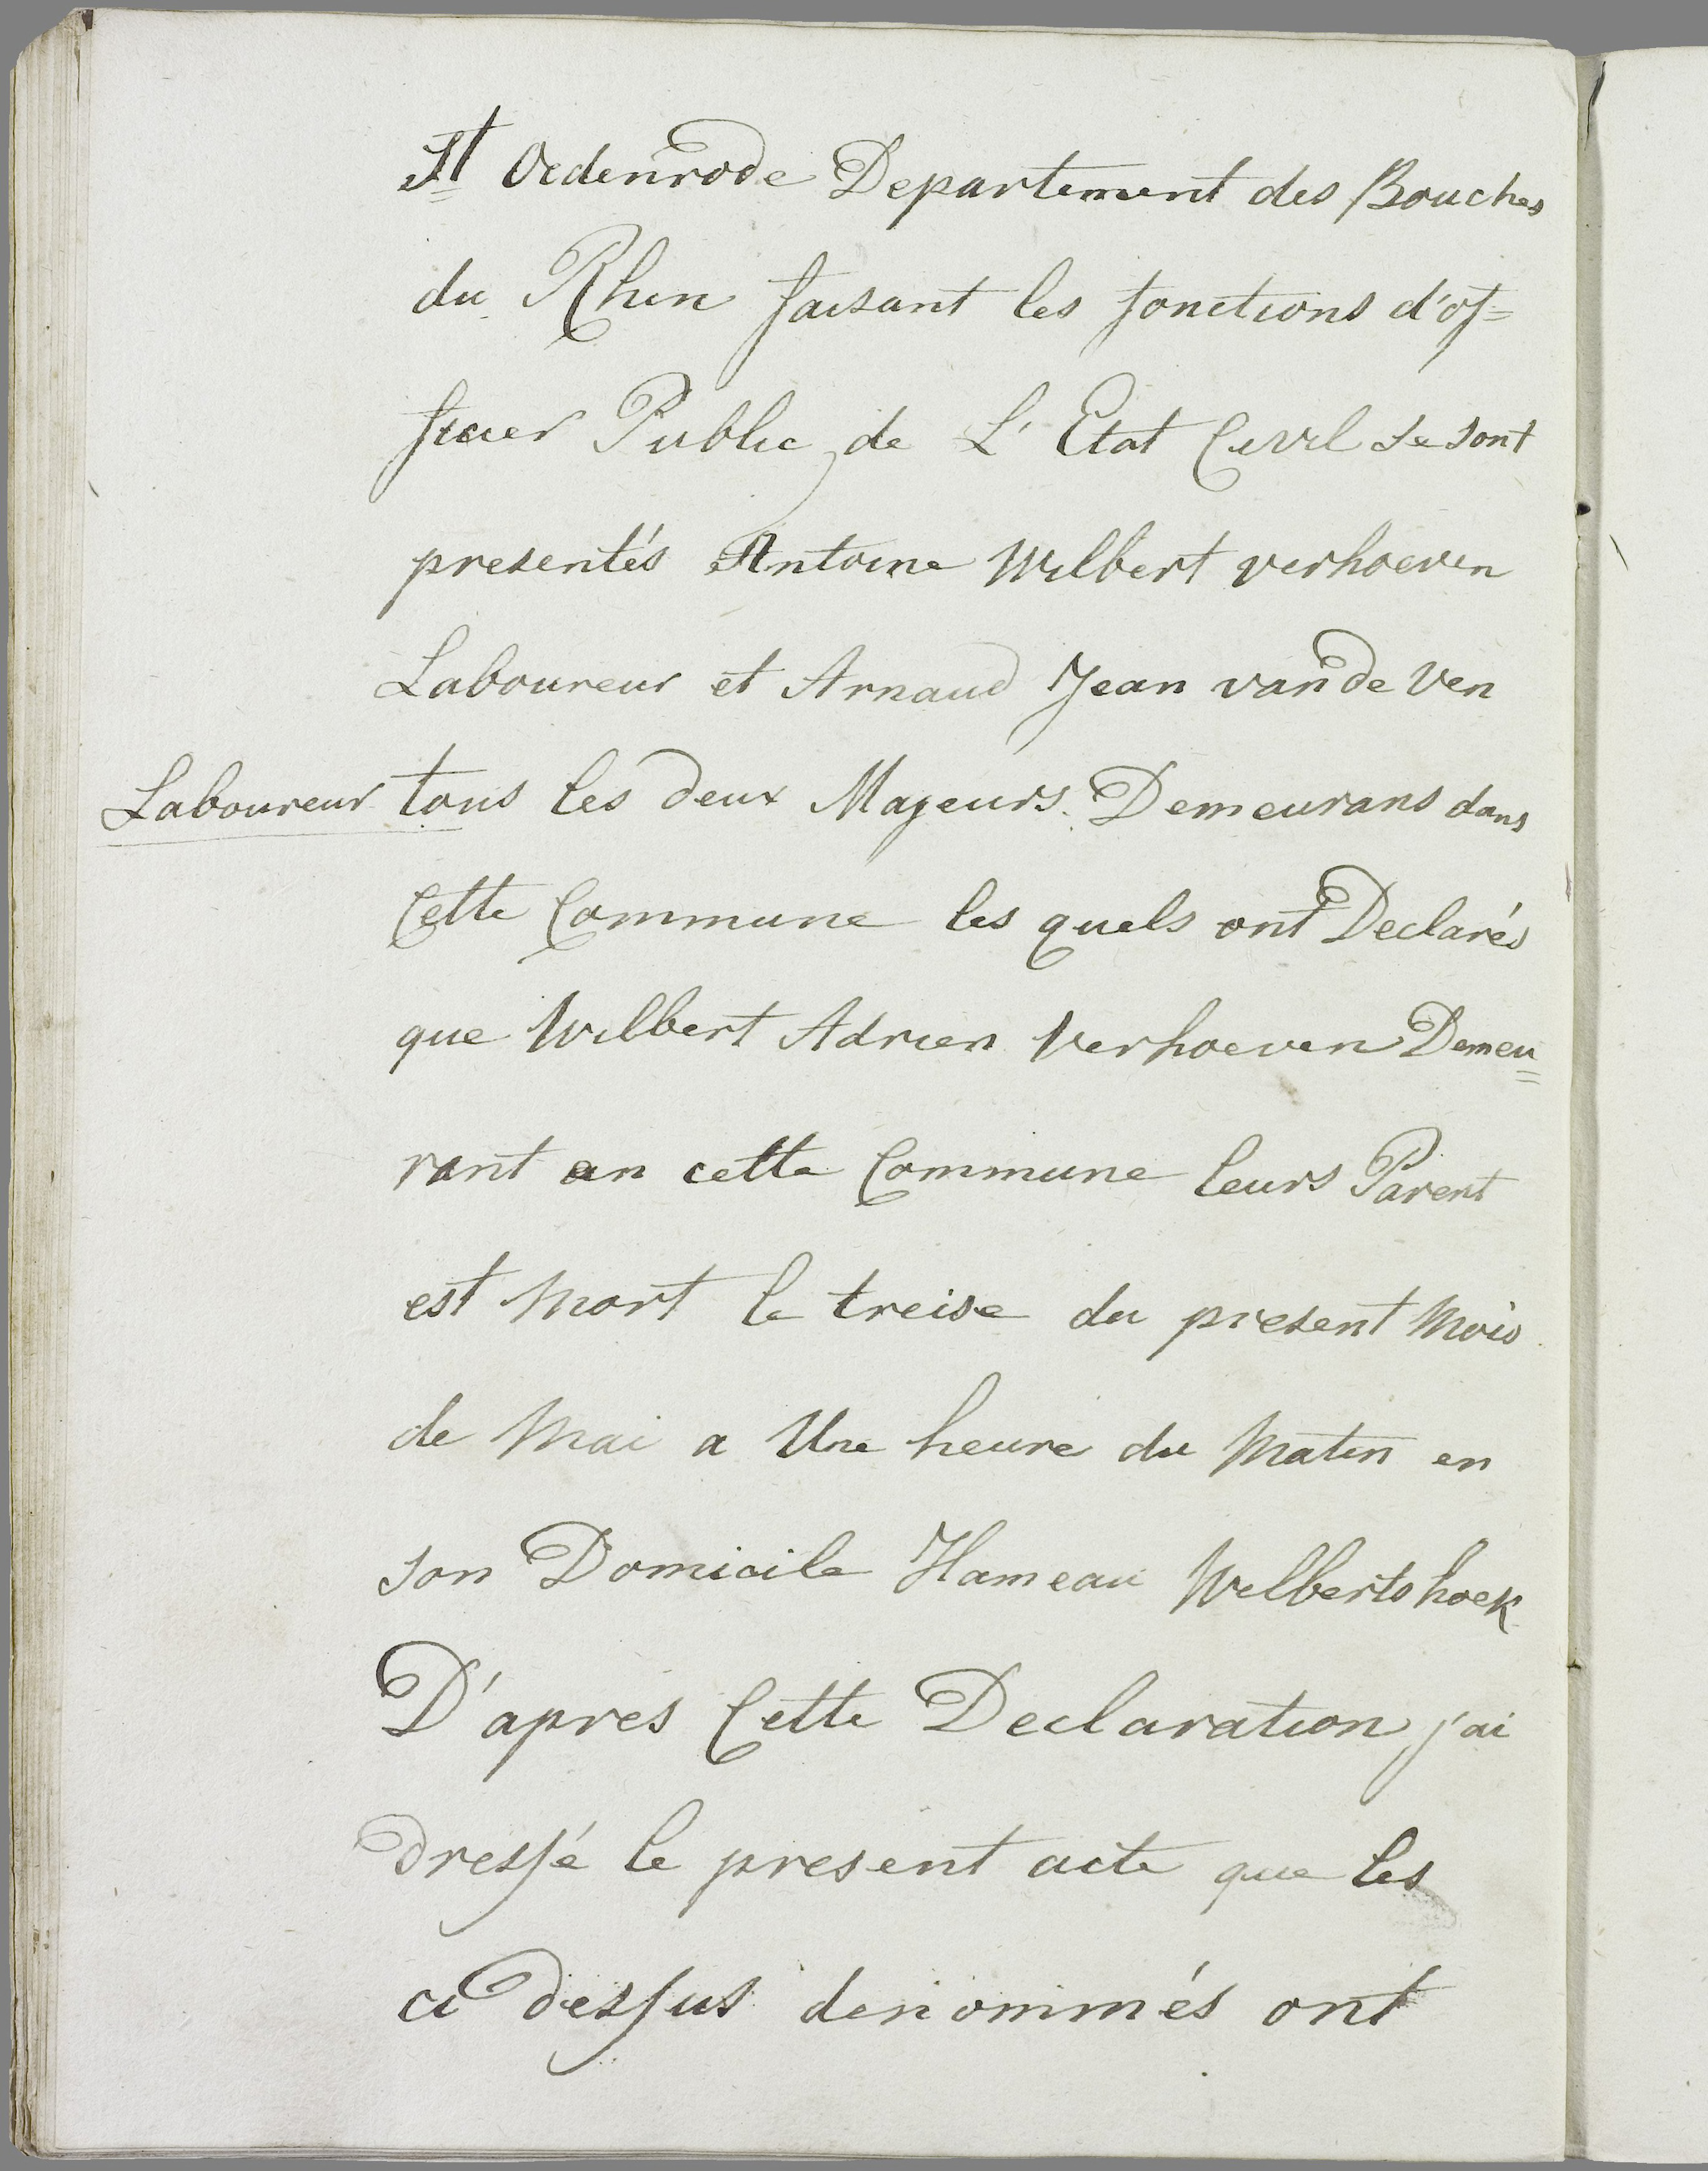 St Oedenrode Departement des Bouches
du Rhin faisant les fonctions d'of=
ficier Public de L'Etat Civil se sont
presentés Antoine Wilbert verhoeven
Laboureur et Arnaud Jean van de Ven
Laboureur tous les deux Majeurs. Demeurans dans
Cette Commune les quels ont Declarés
que Wilbert Adrien Verhoeven Demeu=
rant en cette Commune leurs Parent
est Mort le treise du present Mois
de Mai a Une heure du Matin en
son Domicile Hameau Welbertshoek
D'apres Cette Declaration j'ai
dressé le present acte que les
ci dessus denommés ont